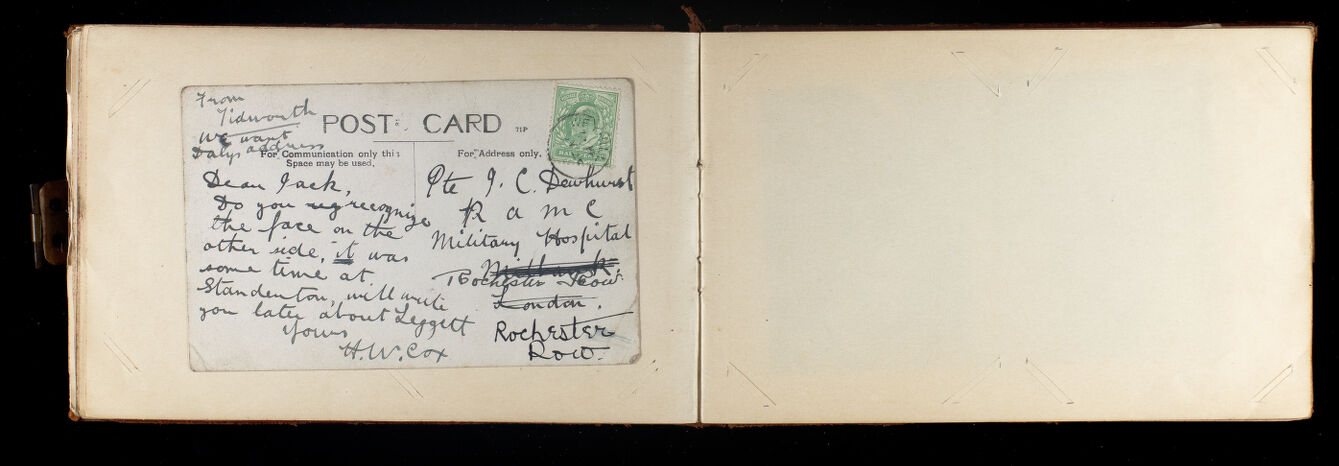 From
Tidworth
We want
Dalys address
POST CARD
For Communication only this
Space may be used.
For Address only.
Dear Jack,
Do you recognize
the face on the
other side, it was
some time at
Standenton, will write
you later about Leggett
Yours
H.W. Cox
Pte J. C. Dewhurst
R A M C
Military Hospital
Millbank.
Rochester Row
London.
Rochester
Row.